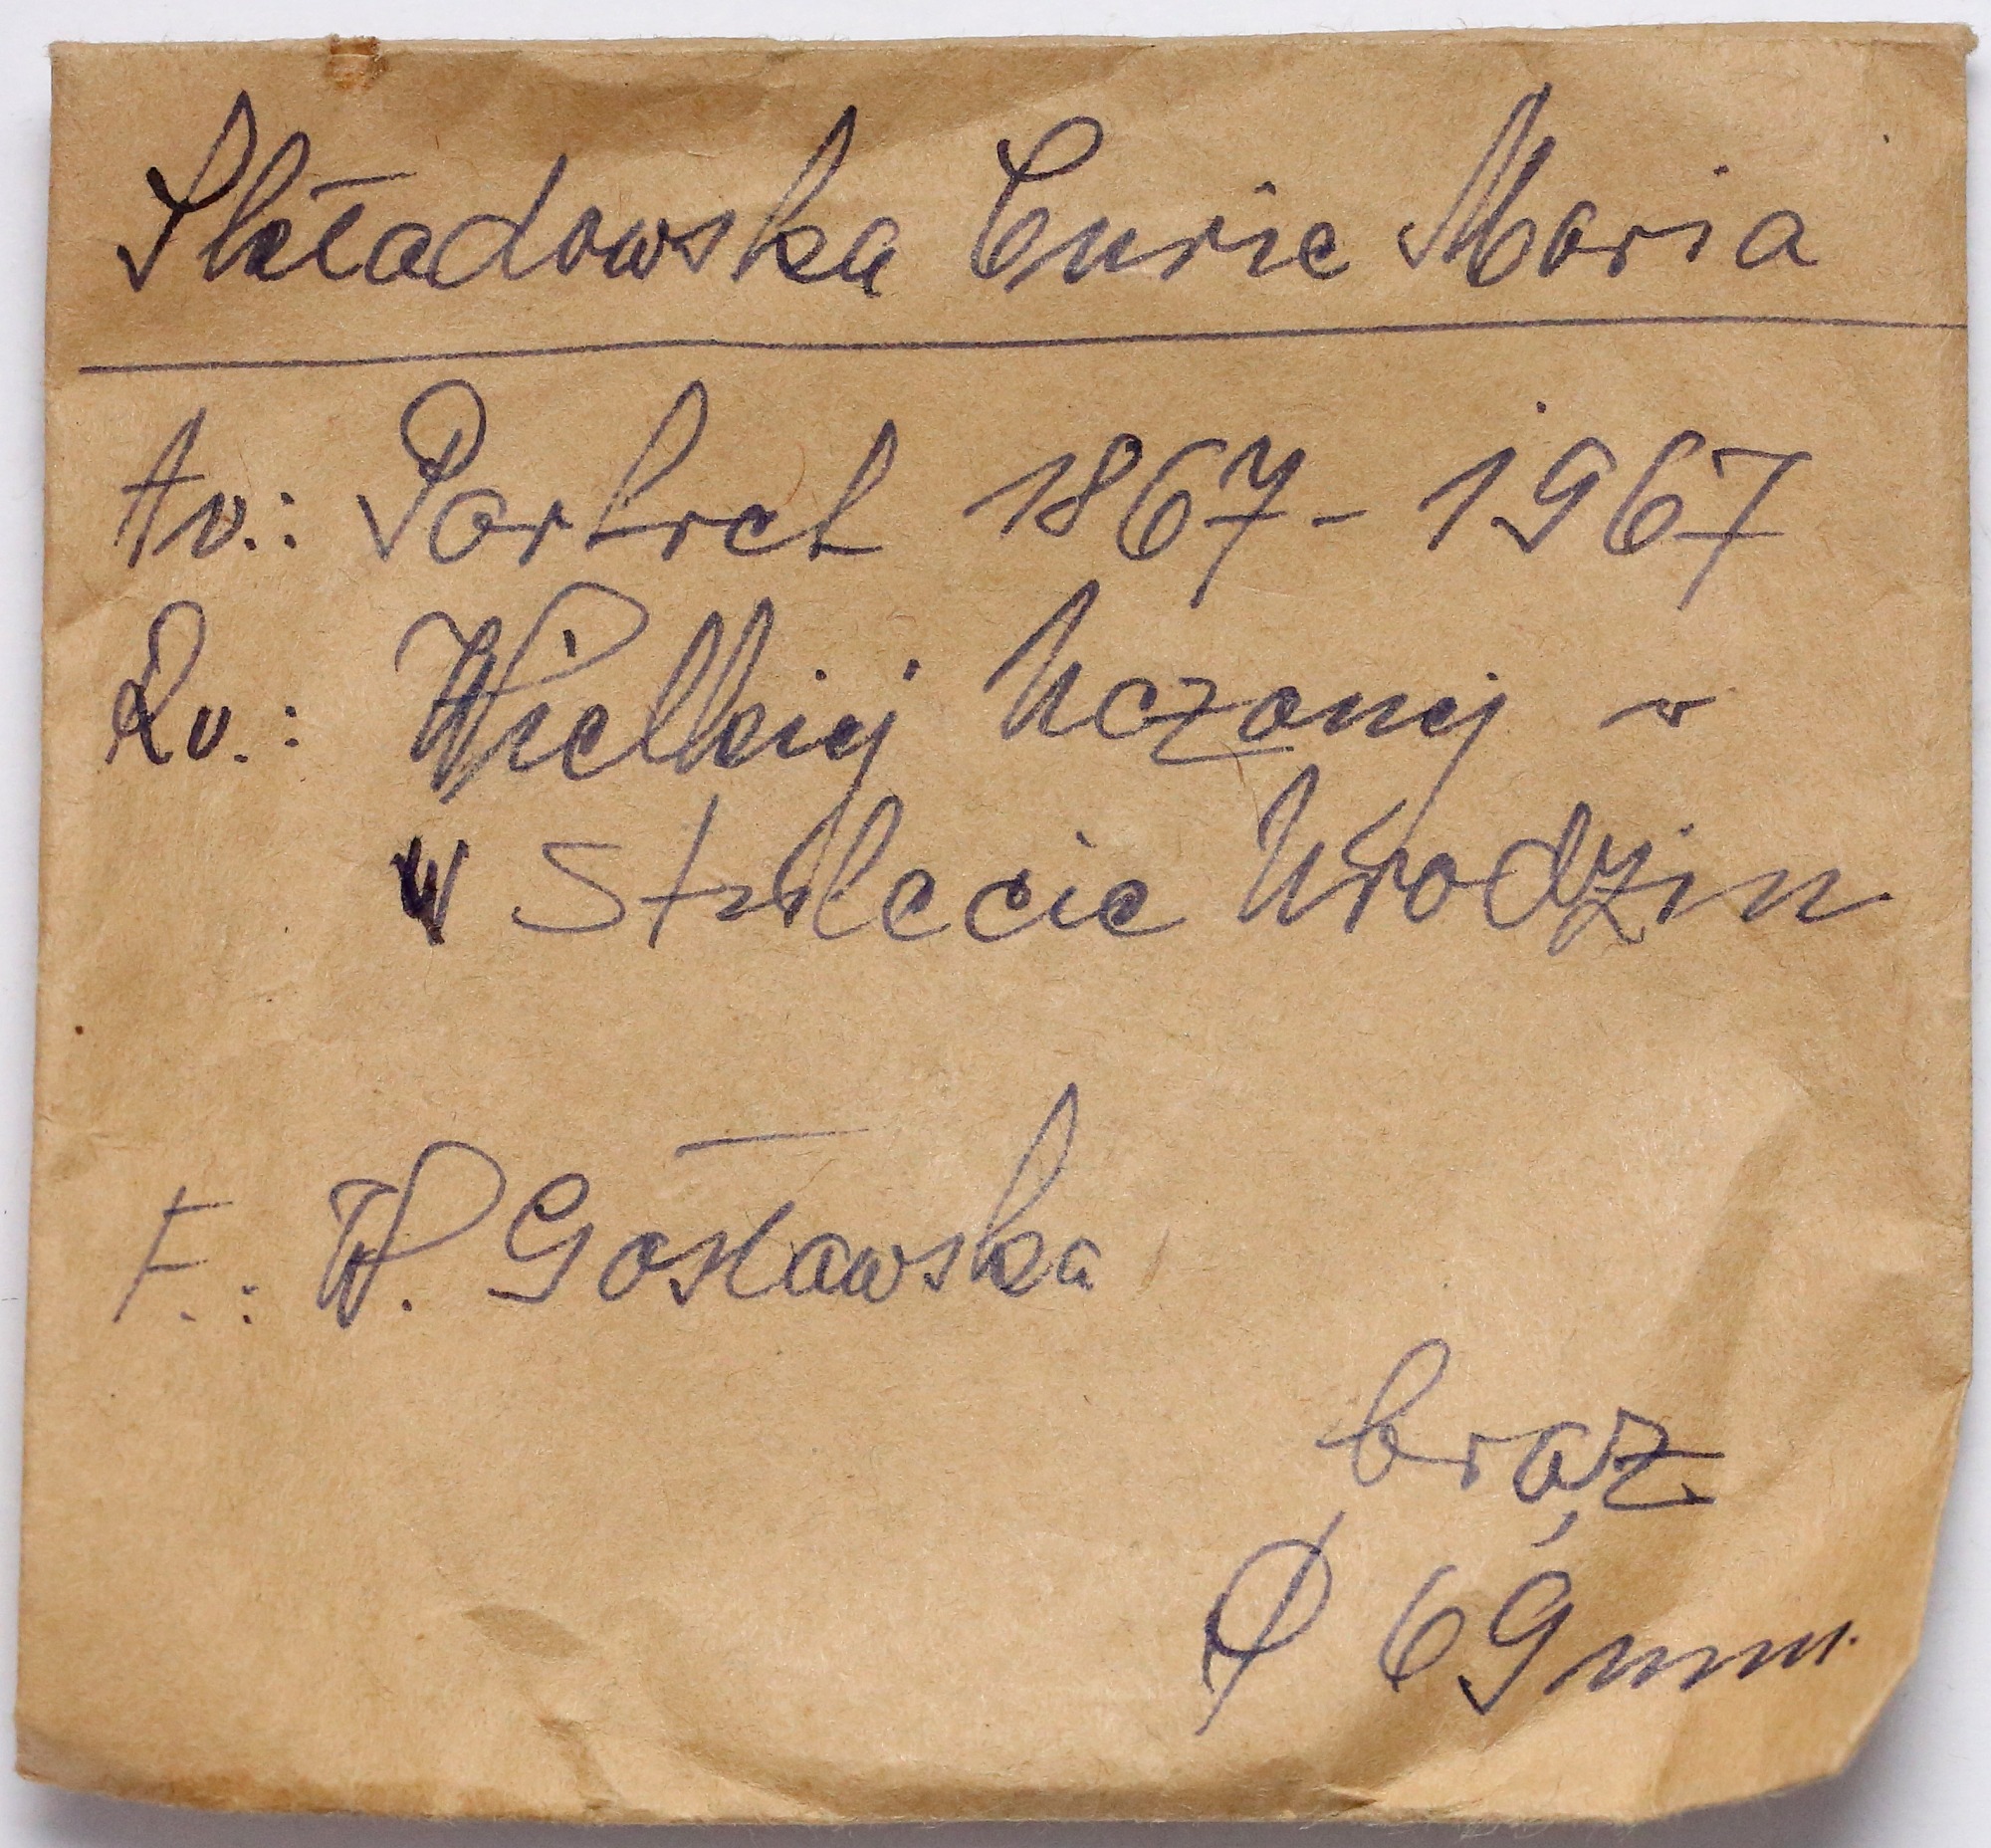 Składowska Curie Maria
Av.: Portret 1867-1967
Rv.: Wielkiej Uczonej w
w Stulecie Urodzin
F.: W. Gosławska
brąz
Ø 69mm.